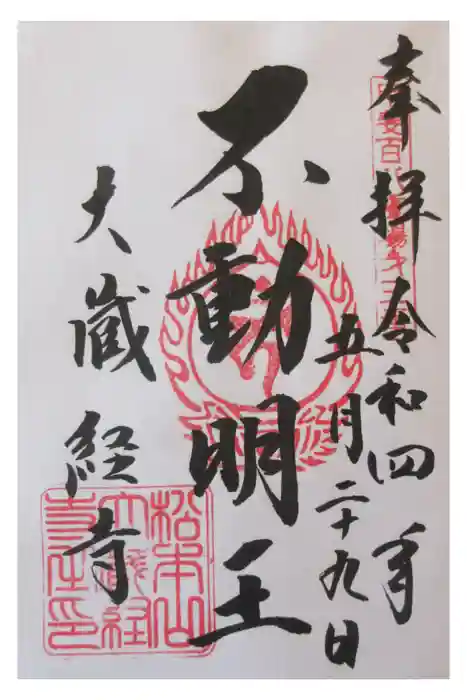 奉拝
令和四年
五月二十九日
不動明王
大蔵経寺
松本山
大蔵経
寺之印